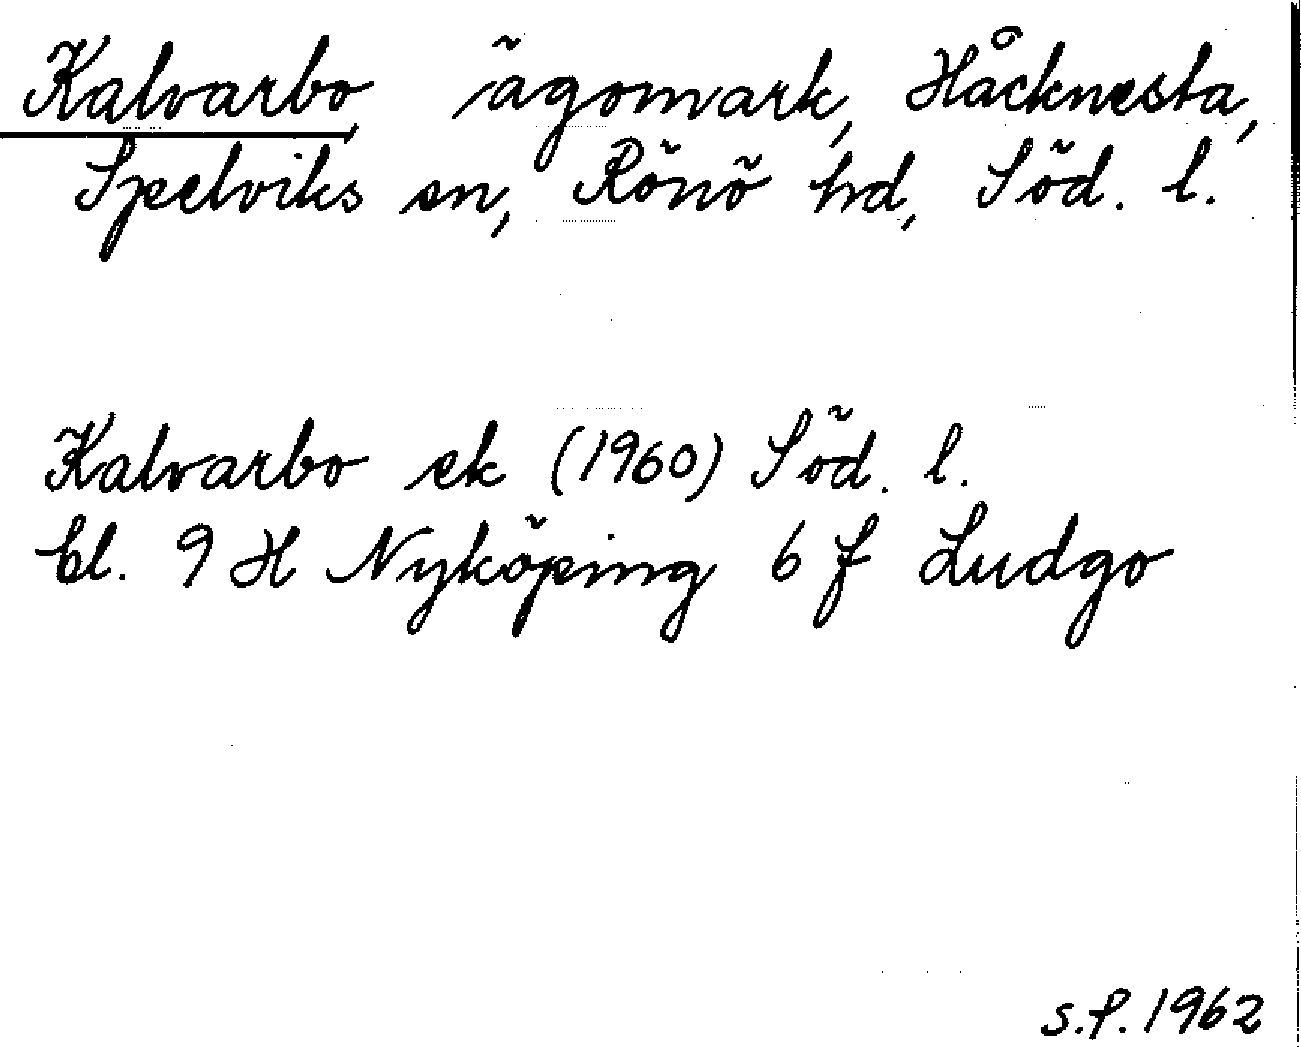 Kalvarbo, ägomark, Håcknesta,
Spelviks sn, Rönö hd, Söd. l.
Kalvarbo ek (1960) Söd. l.
bl. 9 H Nyköping 6 f Ludgo
s.f. 1962